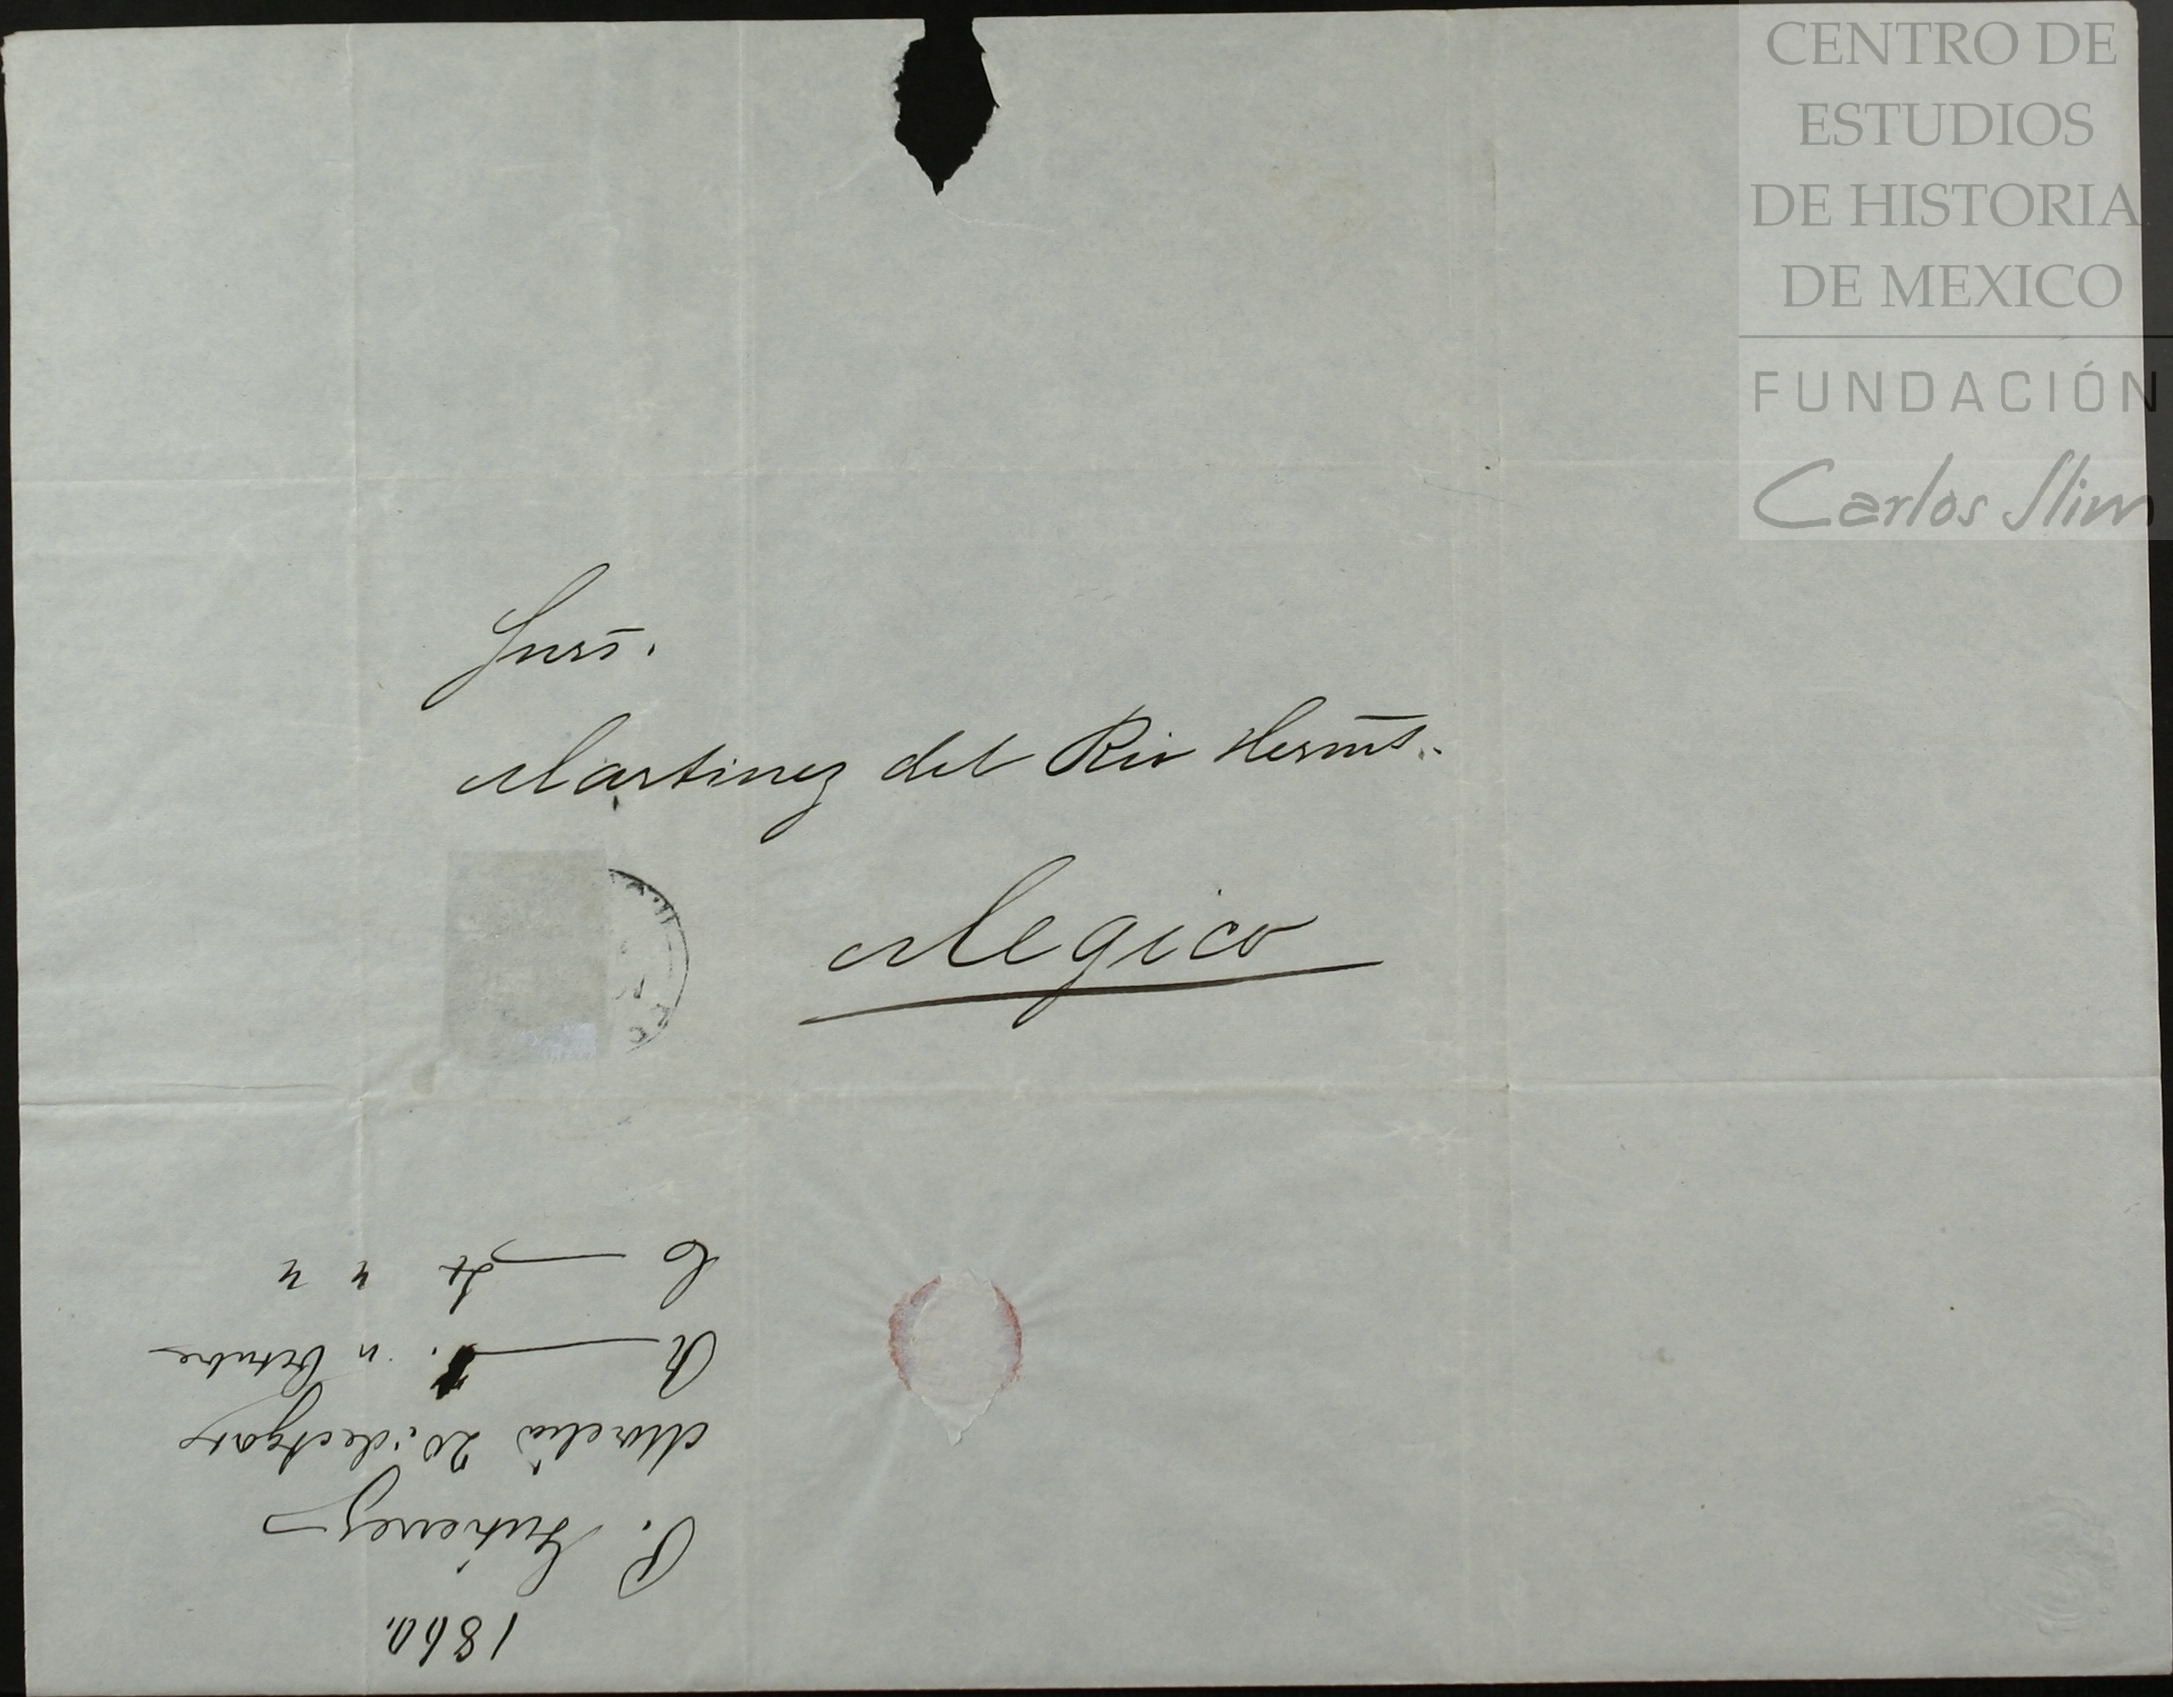 CENTRO DE
ESTUDIOS
DE HISTORIA
DE MEXICO
FUNDACIÓN
Carlos Slim
Sres.
Martinez del Rio Herms.
Megico
1860.
P. Gutierrez
Morelia 20 de Agosto
R Octubre
C